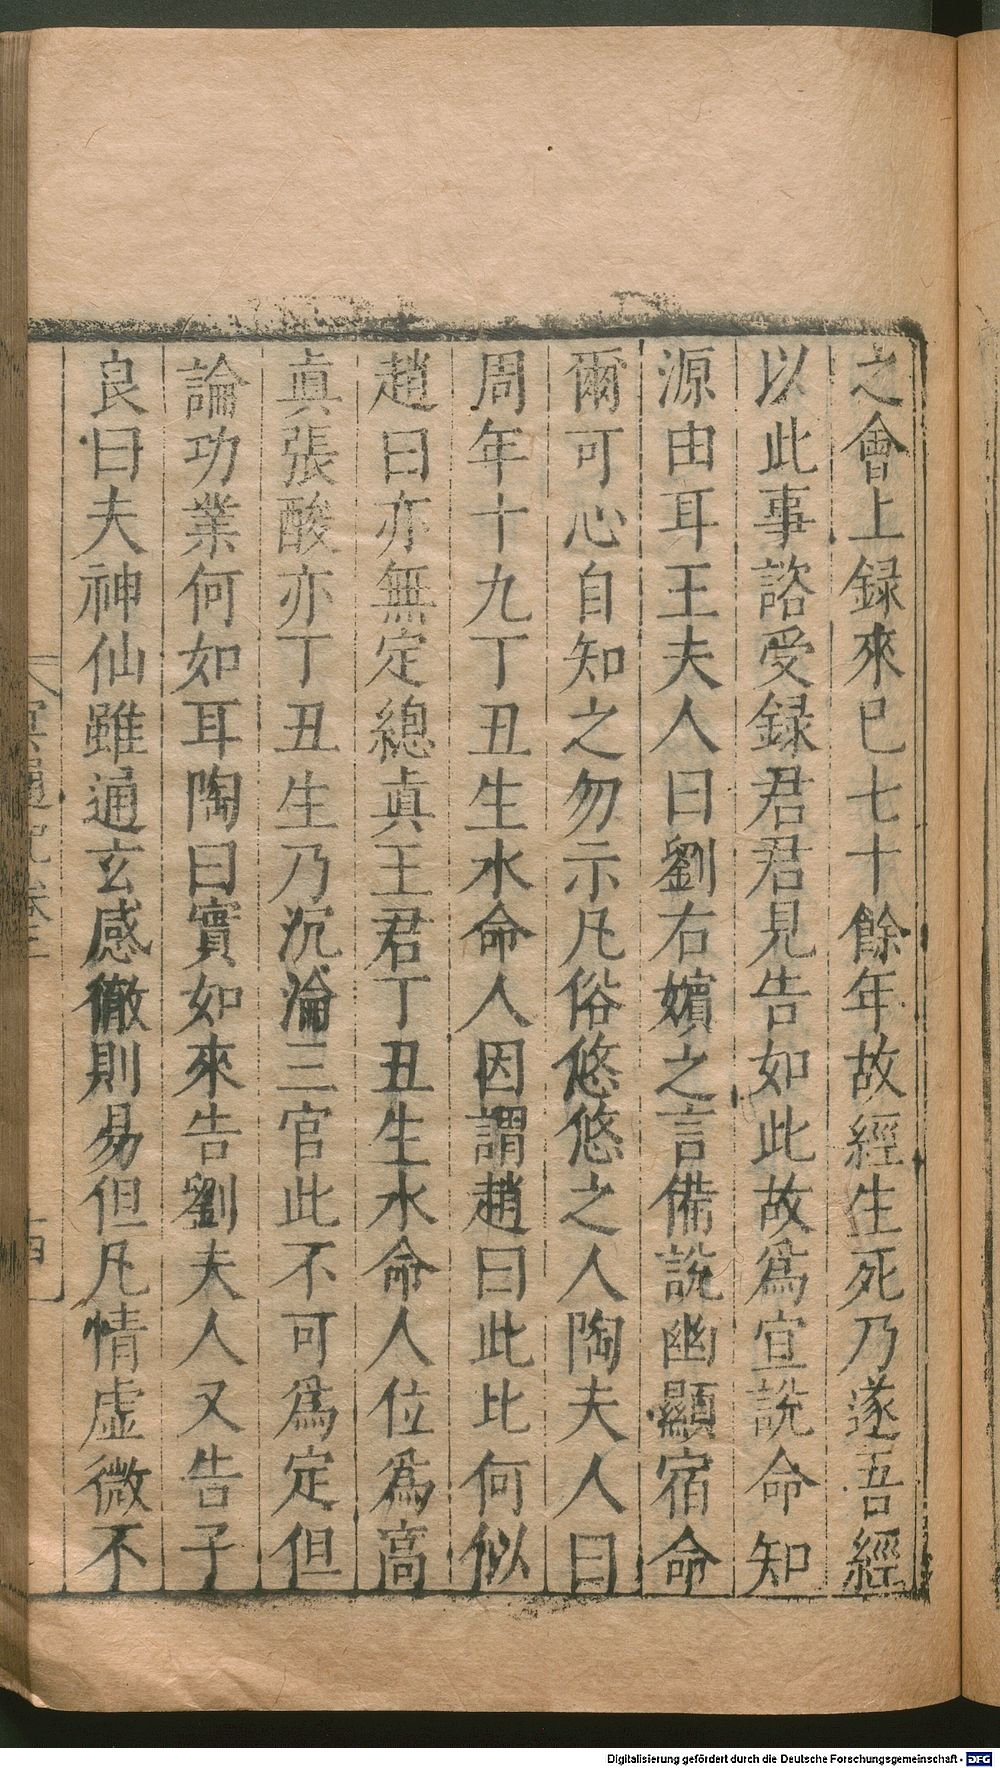 之會上録來已七十餘年故經生死乃遂吾經
以此事諮受録君君見告如此故爲宣説命知
源由耳王夫人曰劉右嬪之言備説幽顯宿命
爾可心自知之勿示凡俗悠悠之人陶夫人曰
周年十九丁丑生水命人因謂趙曰此比何似
趙曰亦無定總眞王君丁丑生水命人位爲高
眞張酸亦丁丑生乃沉淪三官此不可爲定但
論功業何如耳陶曰實如來告劉夫人又告子
良曰夫神仙雖通玄感徹則易但凡情虚微不
冥通記卷三
Digitalisierung gefördert durch die Deutsche Forschungsgemeinschaft - DFG